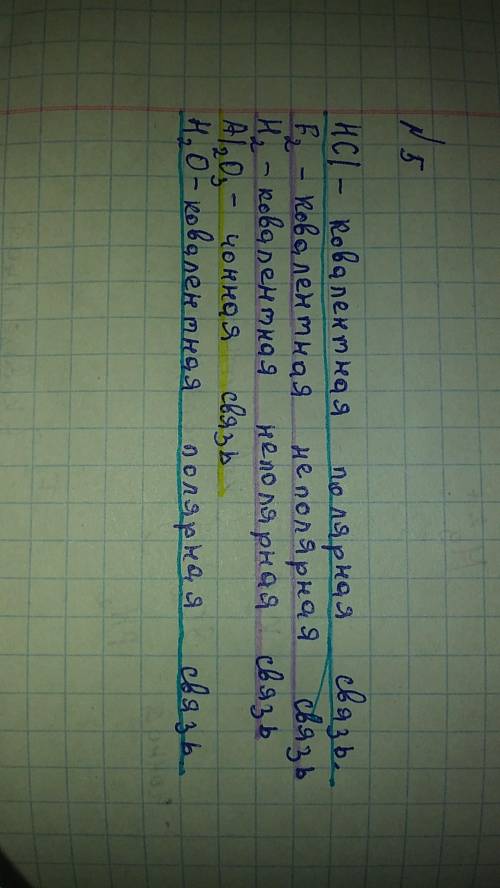 №5
HCl - ковалентная полярная связь.
F₂ - ковалентная неполярная связь
H₂ - ковалентная неполярная связь
Al₂O₃ - ионная связь
H₂O - ковалентная полярная связь